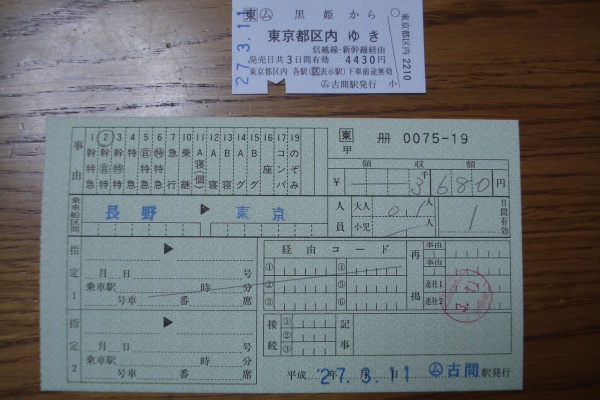 東 ム 黒姫から
東京都区内 ゆき
信越線・新幹線経由
発売日共3日間有効 4430円
東京都区内 各駅(区表示駅)下車前途無効
ム古間駅発行 小
27.3.11
東京都区内 2210
東 甲 冊 0075-19
事由
1 幹特急
2 幹自特
3 幹特特
4 特急
5 自特急
6 特特急
7 急行
10 乗継
11 A寝(個)
12 A寝
13 B寝
14 Aグ
15 Bグ
16 座
17 コンパ
19 のぞみ
領収額
¥ 3千680円
乗車船区間 長野 ▶ 東京
人員 大人 01人 小児 人
1日間有効
指定1 ▶
月 日 号
乗車駅 時 分
号車 番 席
経由コード
① ④
② ⑤
③ ⑥
再掲 事由 事由 連社1 連社2
指定2 ▶
月 日 号
乗車駅 時 分
号車 番 席
接続 ① ② ③
記事
平成 27年 3月 11日 ム古間駅発行